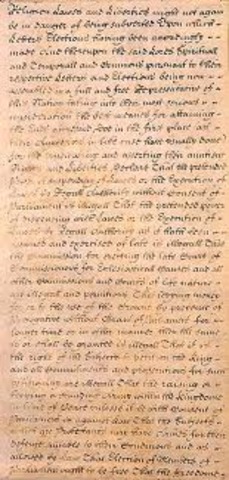 Religion Lawes and Liberties might not again
be in danger of being subverted Upon which
Letters Elections having been accordingly
made And thereupon the said Lords Spirituall
and Temporall and Commons pursuant to their
respective Letters and Elections being now
assembled in a full and free Representative of
this Nation taking into their most serious
consideration the best meanes for attaining
the Ends aforesaid Doe in the first place (as
their Ancestors in like case have usually done)
for the vindicating and asserting their auntient
Rights and Liberties, Declare That the pretended
Power of suspending of Lawes or the Execution of
Lawes by Regall Authority without Consent of
Parliament is illegall That the pretended power
of dispensing with Lawes or the Execution of
Lawes by Regall Authority as it hath been
assumed and exercised of late is illegall That
the Commission for erecting the late Court of
Commissioners for Ecclesiastical Causes and all
other Commissions and Courts of like nature
are illegall and pernicious That levying money
for or to the use of the Crowne by pretence of
Prerogative without Grant of Parliament for
longer time or in other manner then the same
is or shall be granted is illegall That it is
the right of the Subjects to petition the King
and all Commitments and prosecutions for such
petitioning are illegall That the raising or
keeping a standing Army within the Kingdome
in time of Peace unlesse it be with consent of
Parliament is against Law That the Subjects
which are Protestants may have Armes for their
defence suitable to their Conditions and as
allowed by Law That Election of Members of
Parliament ought to be free That the freedome